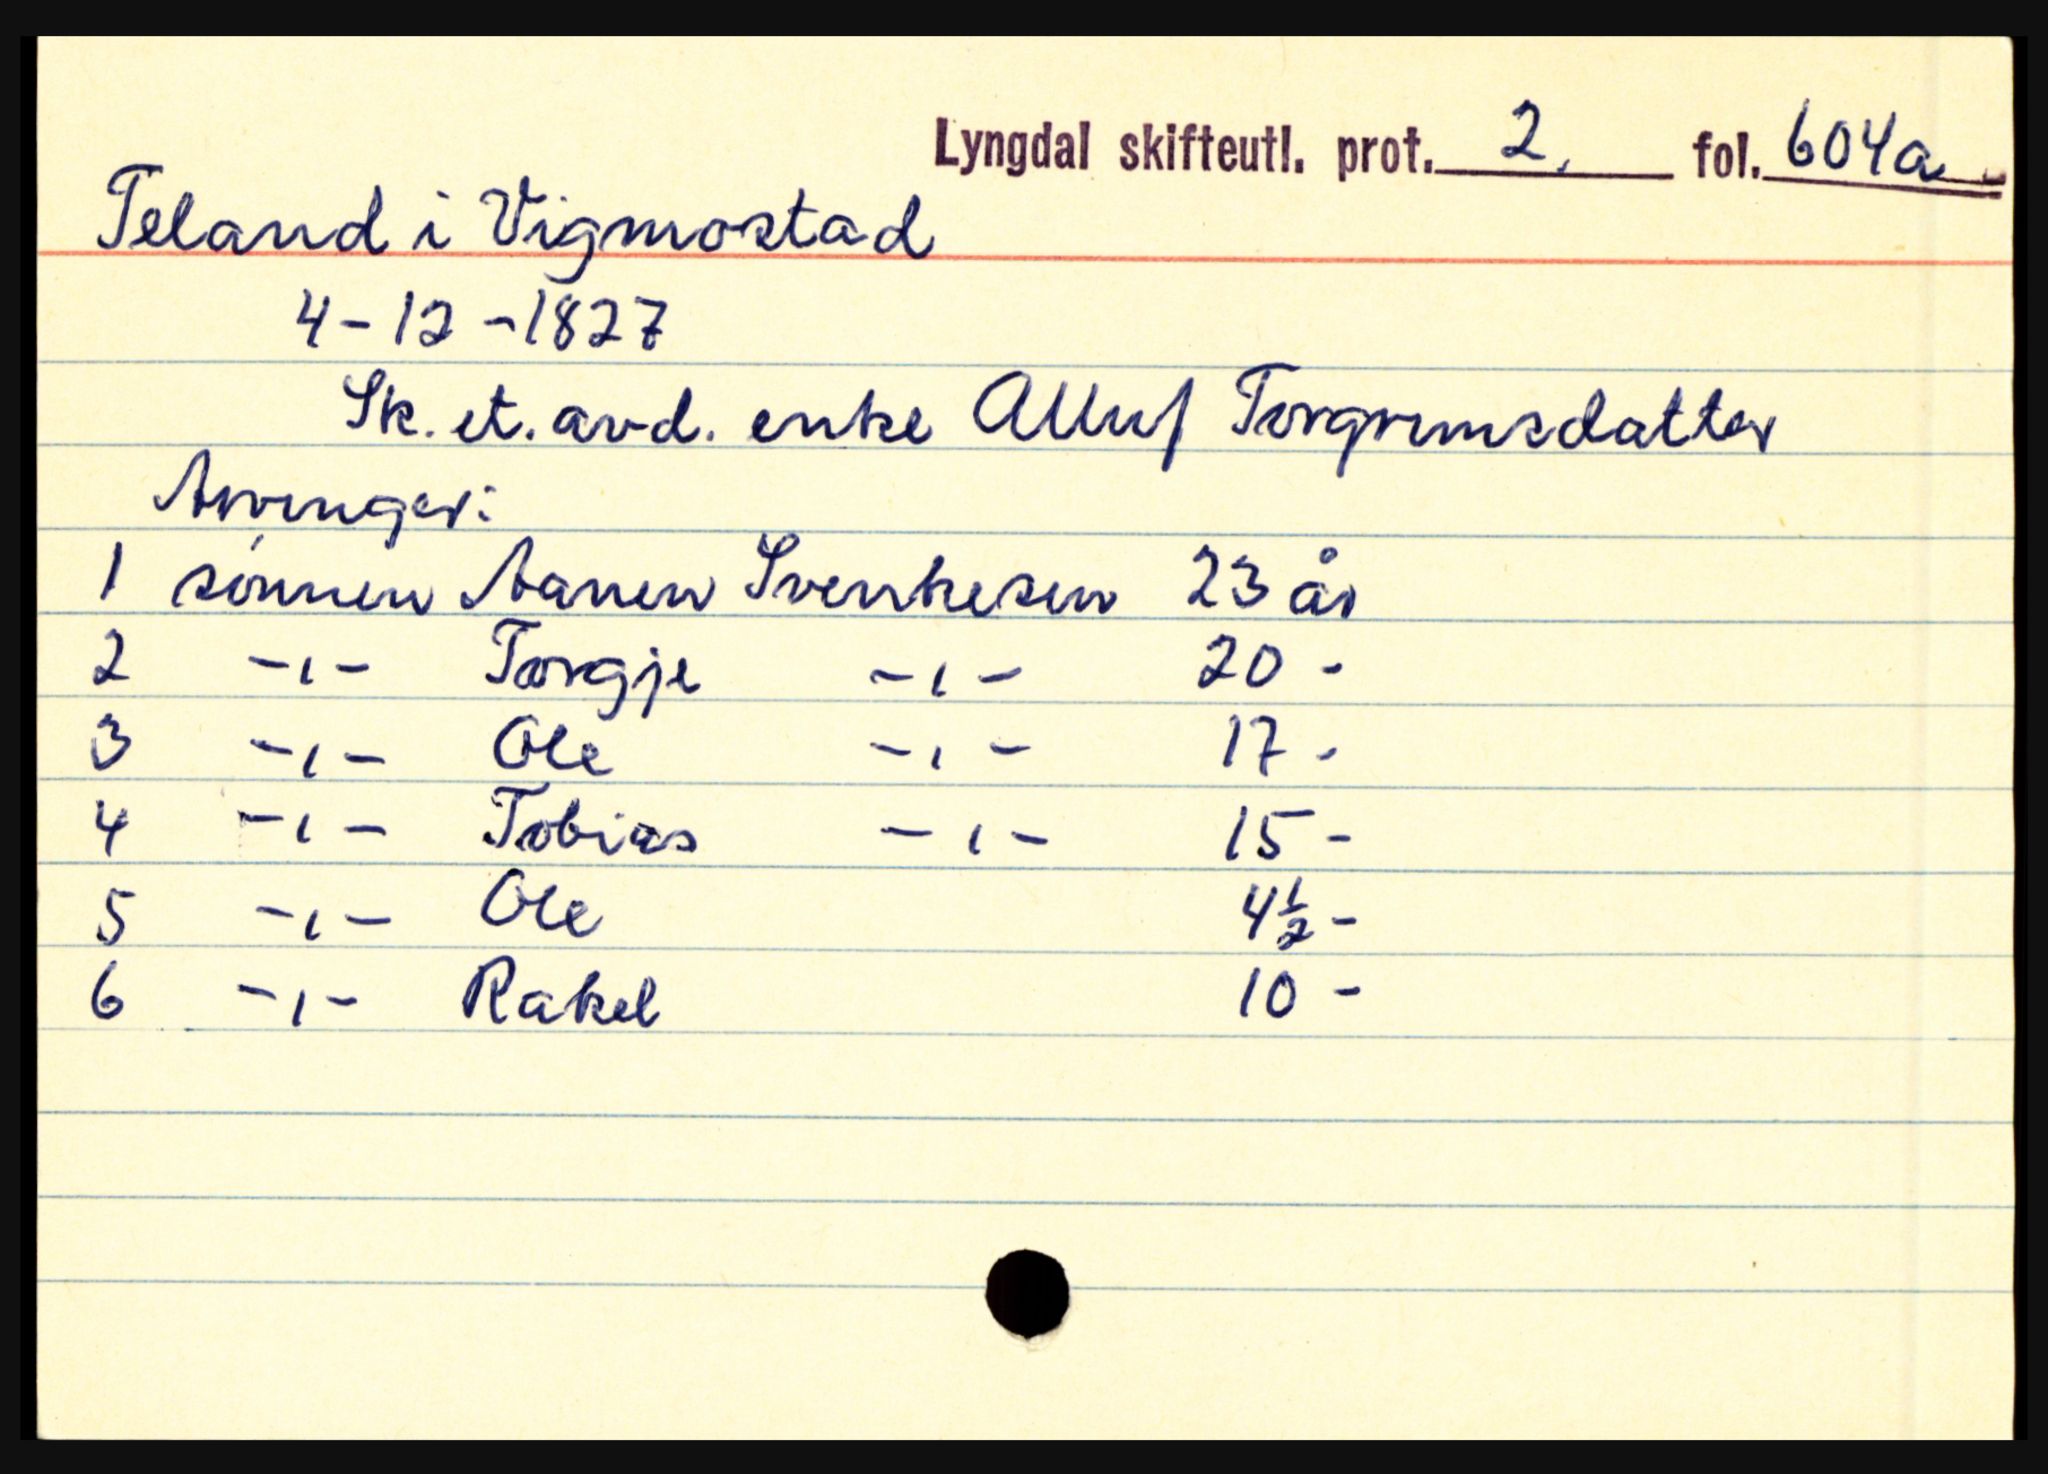 Lyngdal skifteutl. prot. 2. fol. 604a
Teland i Vigmostad
4-12-1827
Sk. et. avd. enke Alluf Torgrimsdatter
Arvinger:
1 sønnen Aanen Svenkesen 23 år
2 -"- Torgje -"- 20 -
3 -"- Ole -"- 17 -
4 -"- Tobias -"- 15 -
5 -"- Ole 4½ -
6 -"- Rakel 10 -